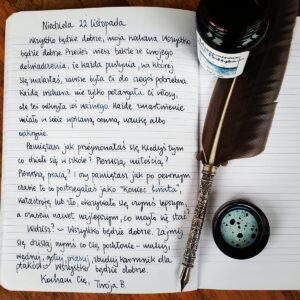 Niedziela 22 listopada
Wszystko będzie dobrze, moja kochana. Wszystko
będzie dobrze. Przecież wiesz także ze swojego
doświadczenia, że każda pustynia, na której
się znalazłaś, zawsze była Ci do czegoś potrzebna.
Każda wichura nie tylko potargała Ci włosy,
ale też odkryła coś ważnego. Każde zmartwienie
miało w sobie wpisaną cenną naukę albo
odkrycie.
Pamiętasz jak przejmowałaś się kiedyś tym
co działo się w szkole? Pierwszą miłością?
Pierwszą pracą? I czy pamiętasz jak po pewnym
czasie to co postrzegałaś jako "koniec świata",
katastrofę lub zło, okazywało się czymś lepszym,
a czasem nawet najlepszym, co mogło się stać?
Widzisz? Wszystko będzie dobrze. Zajmij
się dzisiaj czymś co Cię pochłonie - maluj,
zbuduj karmnik dla
ptaków. Wszystko będzie dobrze.
Kocham Cię,
Twoja B.